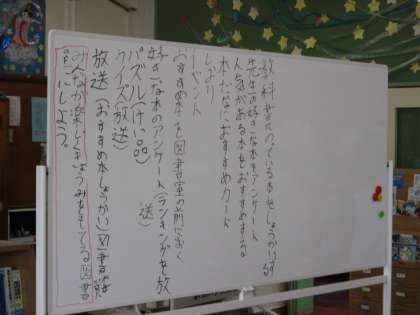 教科書にのっている本をしょうかいする
先生の好きな本をアンケート
人気がある本をおすすめする。
本だなにおすすめカード
しおり
イベント
おすすめ本を図書室の前におく
好きな本のアンケート(ランキングを放送)
パズル(けい品)
クイズ(放送)
放送(おすすめ本しょうかい)図書館
みんなが楽しくきょうみをもてる図書
にしよう。